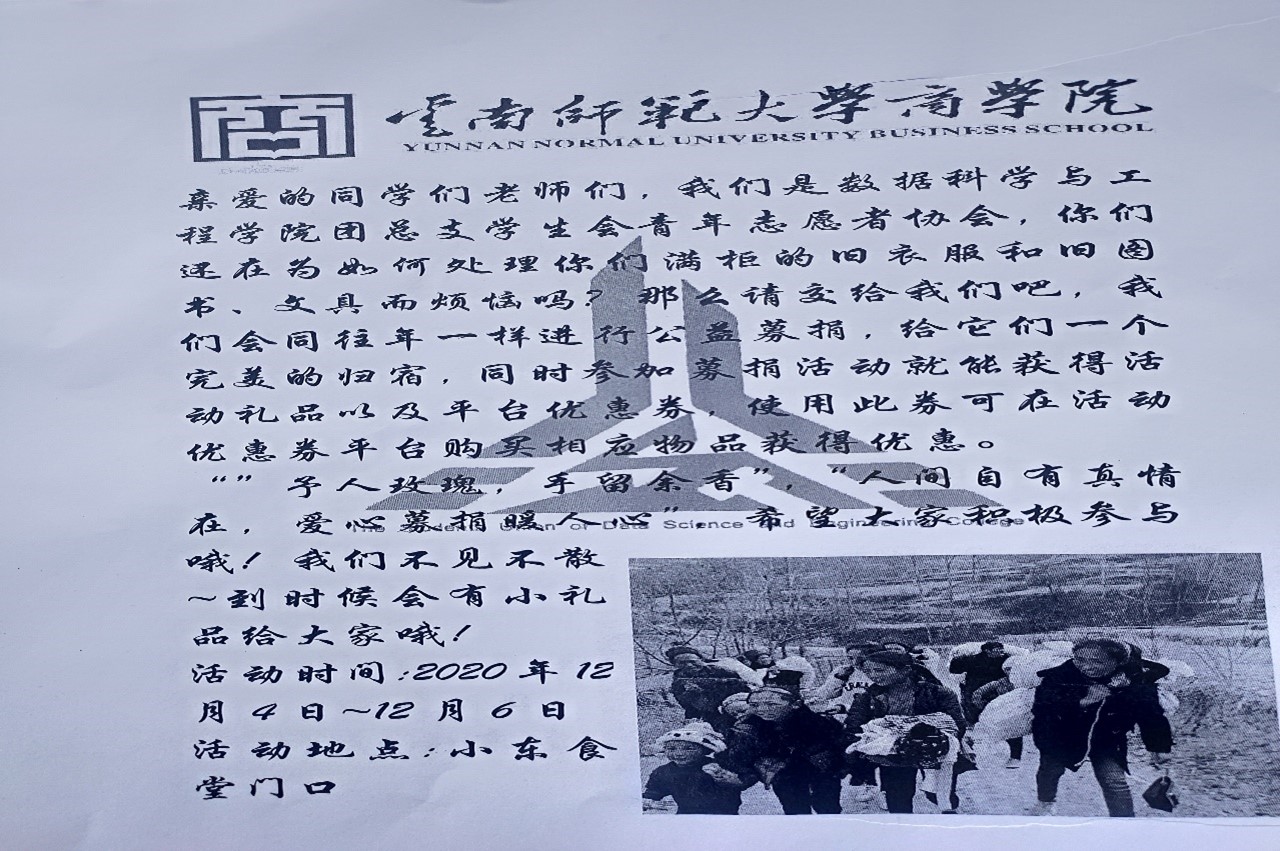 云南师范大学商学院
YUNNAN NORMAL UNIVERSITY BUSINESS SCHOOL
亲爱的同学们老师们，我们是数据科学与工
程学院团总支学生会青年志愿者协会，你们
还在为如何处理你们满柜的旧衣服和旧图
书、文具而烦恼吗？那么请交给我们吧，我
们会同往年一样进行公益募捐，给它们一个
完美的归宿，同时参加募捐活动就能获得活
动礼品以及平台优惠券，使用此券可在活动
优惠券平台购买相应物品获得优惠。
“”予人玫瑰，手留余香”，“人间自有真情
在，爱心募捐暖人心”，希望大家积极参与
Union of Data Science and Engineering College
哦！我们不见不散
~到时候会有小礼
品给大家哦！
活动时间:2020年12
月4日~12月6日
活动地点:小东食
堂门口